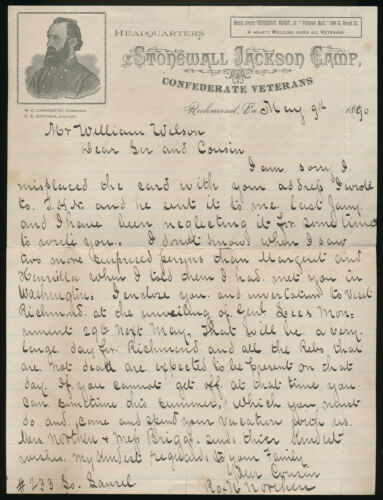 Meets every THURSDAY NIGHT, at
A HEARTY WELCOME GIVEN ALL VETERANS.
HEADQUARTERS
STONEWALL JACKSON CAMP,
CONFEDERATE VETERANS
W. C. CARRINGTON, COMMANDER.
R. N. NORTHEN, ADJUTANT.
Richmond, Va. May 9th 1890
Mr William Wilson
Dear Sir and Cousin
I am sorry I
misplaced the card with your address I wrote
to and he sent it to me last Jany.
and I have been neglecting it for some time
to write you. I do not know when I saw
two more surprised persons than Margaret and
when I told them I had met you in
Washington. I enclose you and invertation to visit
Richmond at the unveiling of Genl Lees Mon-
ument 29th Next May. That will be a very
large day for Richmond and all the Rebs that
are not dead are expected to be present on that
day. If you cannot get off at that time you
can sometime this summer, which you must
do and come and spend your vacation with us.
Mrs Northen & Miss Briggs sends thier kindest
wishes. my kindest regards to your family
Your Cousin
#233 So. Laurel Ro. N Northen